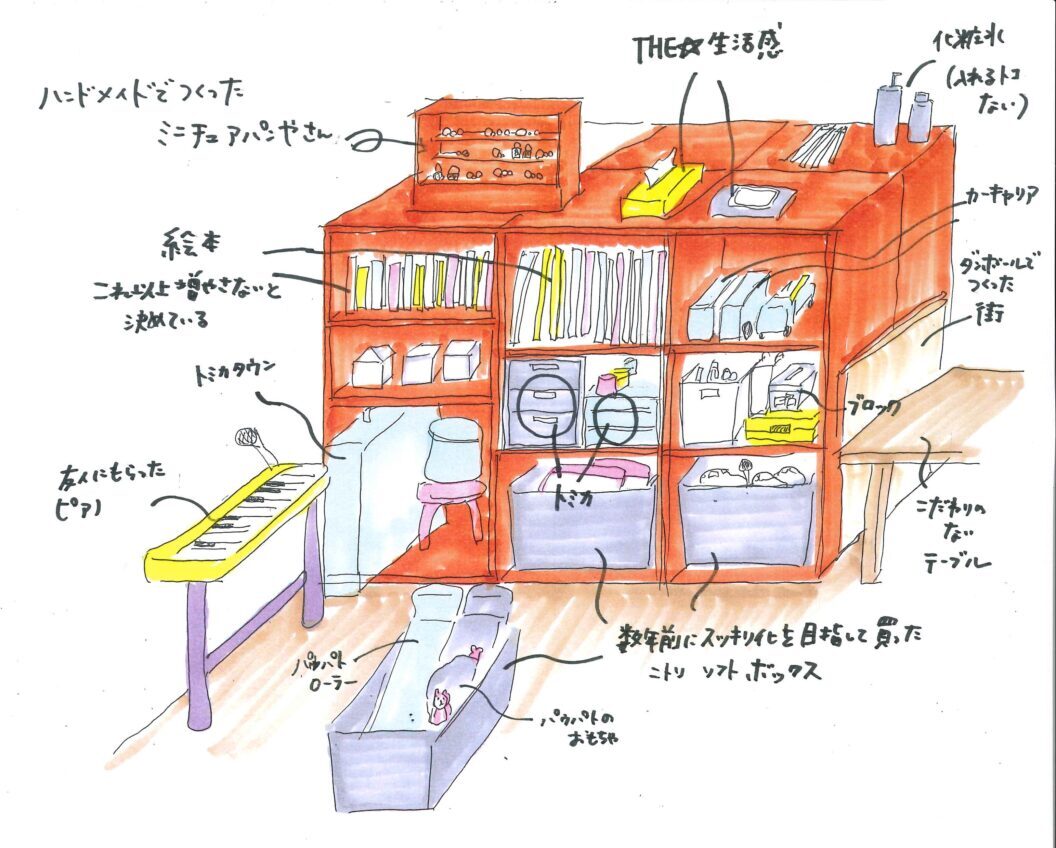 THE☆生活感
化粧水
(入れるトコ
ない)
ハンドメイドでつくった
ミニチュアパンやさん
カーキャリア
絵本
これ以上増やさないと
決めている
ダンボールで
つくった
街
トミカタウン
ブロック
友人にもらった
ピアノ
トミカ
こだわりの
ない
テーブル
数年前にスッキリ化を目指して買った
ニトリ ソフトボックス
パウパト
ローラー
パウパトの
おもちゃ